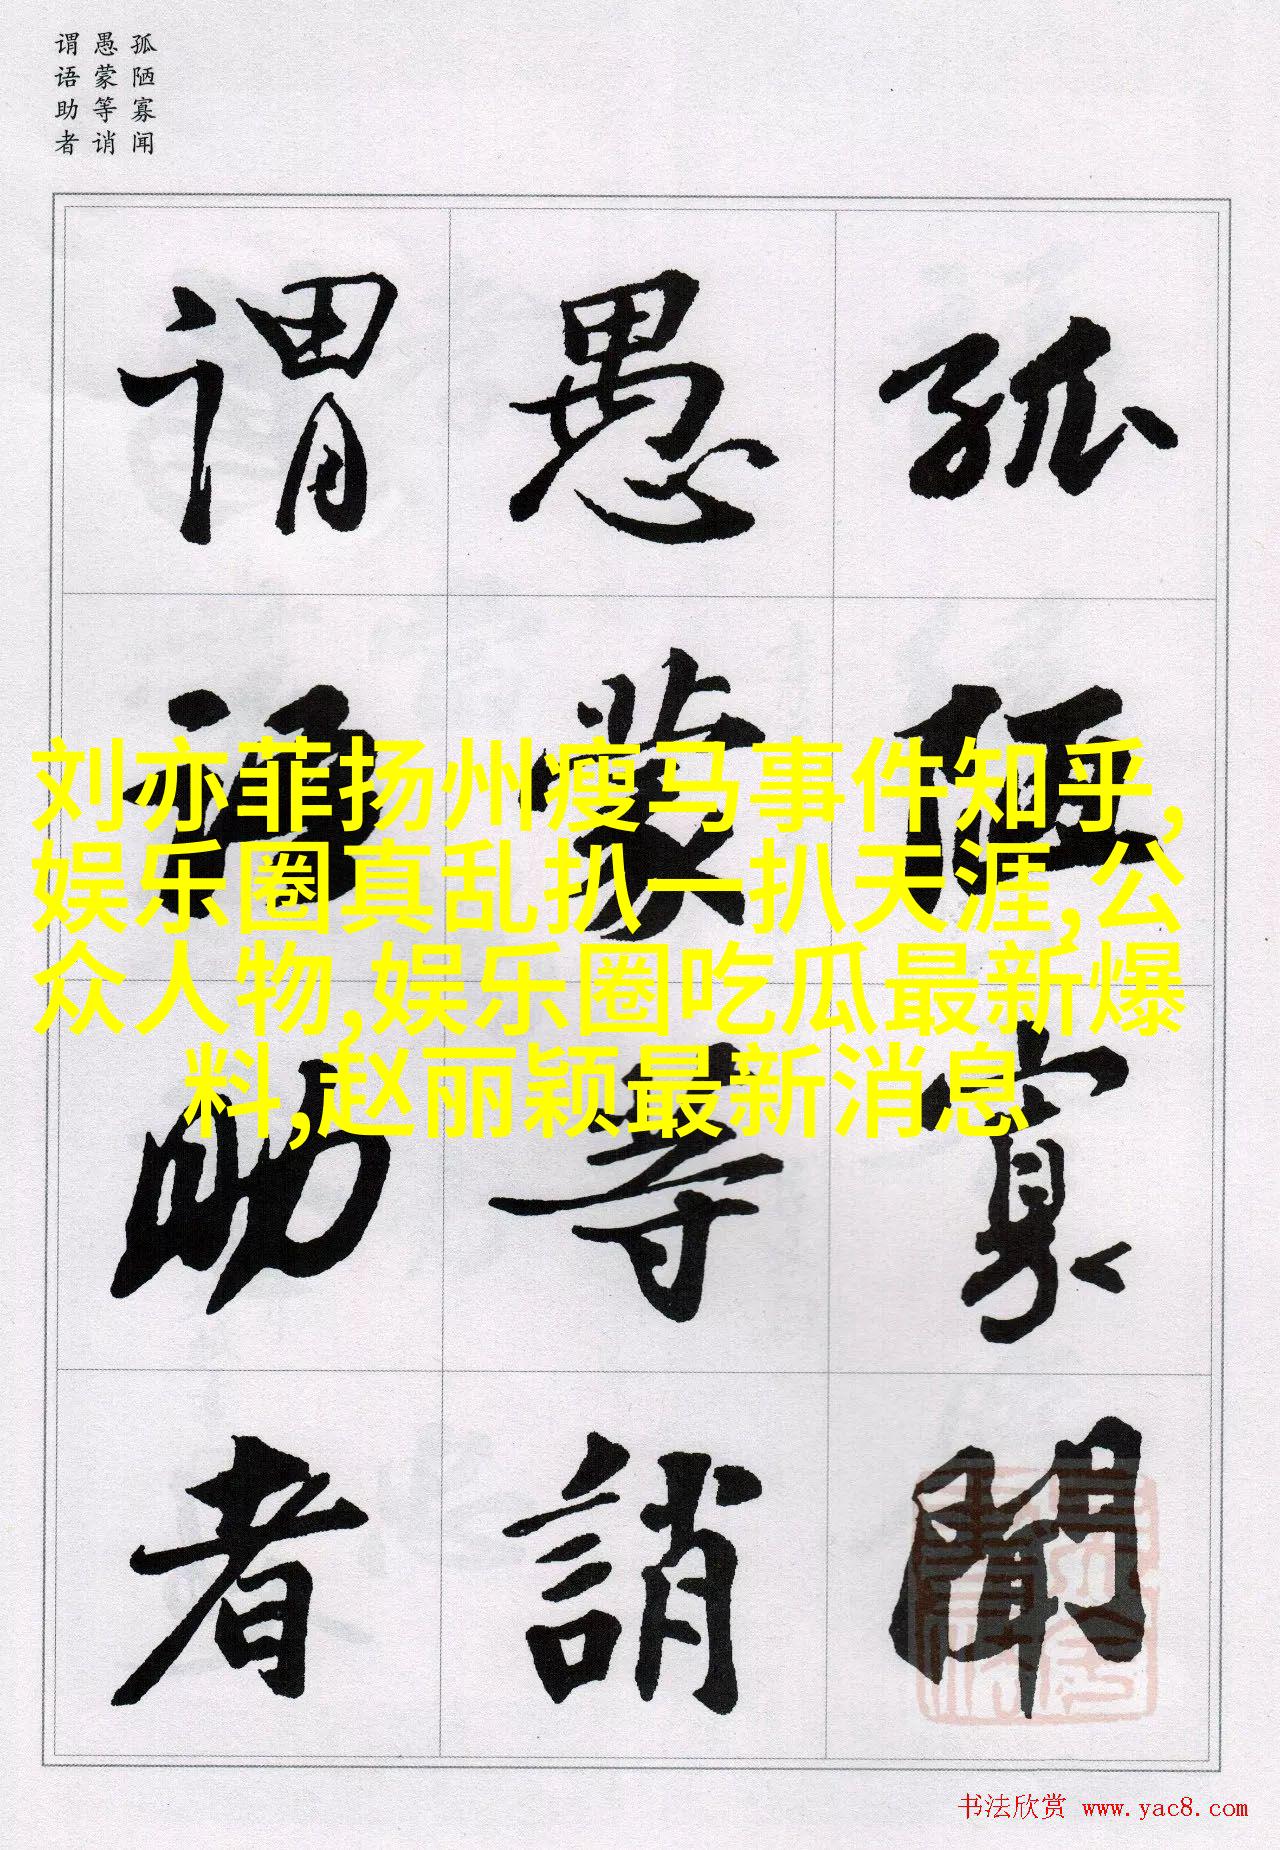 孤陋寡闻
愚蒙等诮
谓语助者
孤陋寡聞
愚蒙等誚
谓语助者
刘亦菲扬州瘦马事件知乎,
娱乐圈真乱扒一扒天涯,公
众人物,娱乐圈吃瓜最新爆
料,赵丽颖最新消息
书法欣赏 www.yac8.com